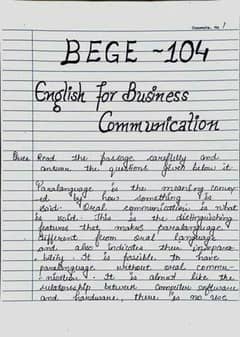 BEGE -104
English for Business
Communication
Read the passage carefully and
answer the questions given below it
Paralanguage is the meaning convey
ed by how something is
said. Oral communication is what
is said. This is the distinguishing
features that makes paralanguage
different from oral language
and also indicates their insepara
bility. It is possible to have
paralanguage without oral commu
nication. It is almost like the
relationship between computer software
and hardware, there is no use